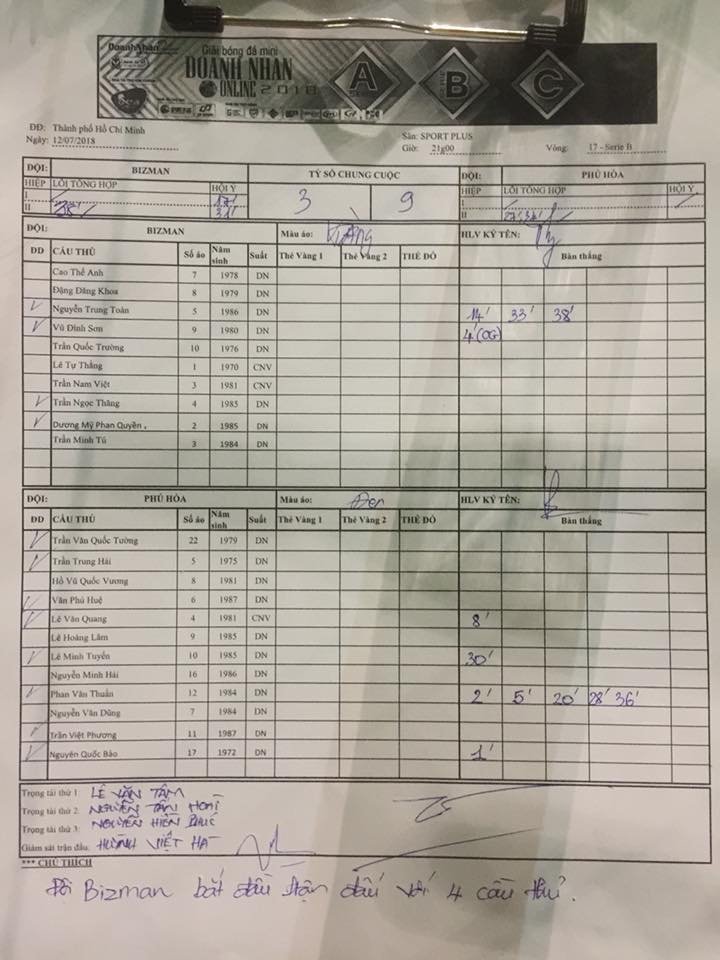 Doanh Nhân
Giải bóng đá mini
DOANH NHÂN
ONLINE 2018
A B C
ĐĐ: Thành phố Hồ Chí Minh Sân: SPORT PLUS
Ngày: 12/07/2018 Giờ: 21g00 Vòng: 17 - Serie B
ĐỘI: BIZMAN TỶ SỐ CHUNG CUỘC ĐỘI: PHÚ HÒA
HIỆP LỖI TỔNG HỢP HỘI Ý 3 9 HIỆP LỖI TỔNG HỢP HỘI Ý
I 17' I
II 31' II
ĐỘI: BIZMAN Màu áo: HLV KÝ TÊN:
DD CẦU THỦ Số áo Năm sinh Suất Thẻ Vàng 1 Thẻ Vàng 2 THẺ ĐỎ Bàn thắng
Cao Thế Anh 7 1978 DN
Đặng Đăng Khoa 8 1979 DN
Nguyễn Trung Toàn 5 1986 DN 14' 33' 38'
Vũ Đình Sơn 9 1980 DN 4'(OG)
Trần Quốc Trường 10 1976 DN
Lê Tự Thắng 1 1970 CNV
Trần Nam Việt 3 1981 CNV
Trần Ngọc Thăng 4 1985 DN
Dương Mỹ Phan Quyền , 2 1985 DN
Trần Minh Tú 3 1984 DN
ĐỘI: PHÚ HÒA Màu áo: Đen HLV KÝ TÊN:
DD CẦU THỦ Số áo Năm sinh Suất Thẻ Vàng 1 Thẻ Vàng 2 THẺ ĐỎ Bàn thắng
Trần Văn Quốc Tường 22 1979 DN
Trần Trung Hải 5 1975 DN
Hồ Vũ Quốc Vương 8 1981 DN
Văn Phú Huệ 6 1987 DN
Lê Văn Quang 4 1981 CNV 8'
Lê Hoàng Lâm 9 1985 DN
Lê Minh Tuyến 10 1985 DN 30'
Nguyễn Minh Hải 16 1986 DN
Phan Văn Thuấn 12 1984 DN 2' 5' 20' 28' 36'
Nguyễn Văn Dũng 7 1984 DN
Trần Việt Phương 11 1987 DN
Nguyễn Quốc Bảo 17 1972 DN 1'
Trọng tài thứ 1: LÊ VĂN TÂM
Trọng tài thứ 2: NGUYỄN TẤN HOÀI
Trọng tài thứ 3: NGUYỄN HIỀN PHÚC
Giám sát trận đấu: HUỲNH VIỆT HÀ
*** CHÚ THÍCH
Đội Bizman bắt đầu trận đấu với 4 cầu thủ.